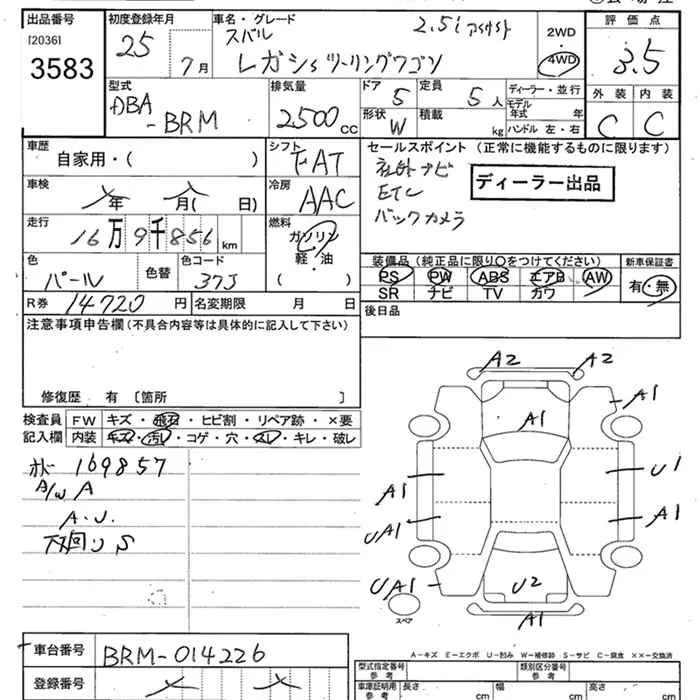 出品番号 初度登録年月 車名・グレード 評価点
[2036] 25 7月 スバル 2.5i アイサイト 2WD 3.5
3583 レガシィツーリングワゴン 4WD
型式 排気量 ドア 定員 ディーラー・並行 外装 内装
DBA 5 5人 モデル年式 年
-BRM 2500cc 形状 積載 C C
W kg ハンドル 左・右
車歴 シフト セールスポイント (正常に機能するものに限ります)
自家用・( ) FAT 社外ナビ
車検 年 月( 日) 冷房 ETC ディーラー出品
AAC バックカメラ
走行 燃料
16万9千856km ガソリン
色 色替 色コード 軽・油 装備品 (純正品に限り○をつけてください) 新車保証書
パール 37J ( ) PS PW ABS エアB AW 有・無
SR ナビ TV カワ
R券 14720円 名変期限 月 日 後日品
注意事項申告欄 (不具合内容等は具体的に記入して下さい)
修復歴 有 〔箇所 〕
検査員 FW キズ・飛石・ヒビ割・リペア跡・×要
記入欄 内装 キズ・汚れ・コゲ・穴・スレ・キレ・破レ
169857
A/W A
A.U.
下回り S
A2 A2
A1 A1
A1 U1
UA1 A1
UA1 U2
スペア A1
A-キズ E-エクボ U-凹み W-補修跡 S-サビ C-腐食 ××-交換済
車台番号 BRM-014226
登録番号
型式指定番号 参考 類別区分番号 参考
車庫証明用 参考 長さ cm 幅 cm 高さ cm